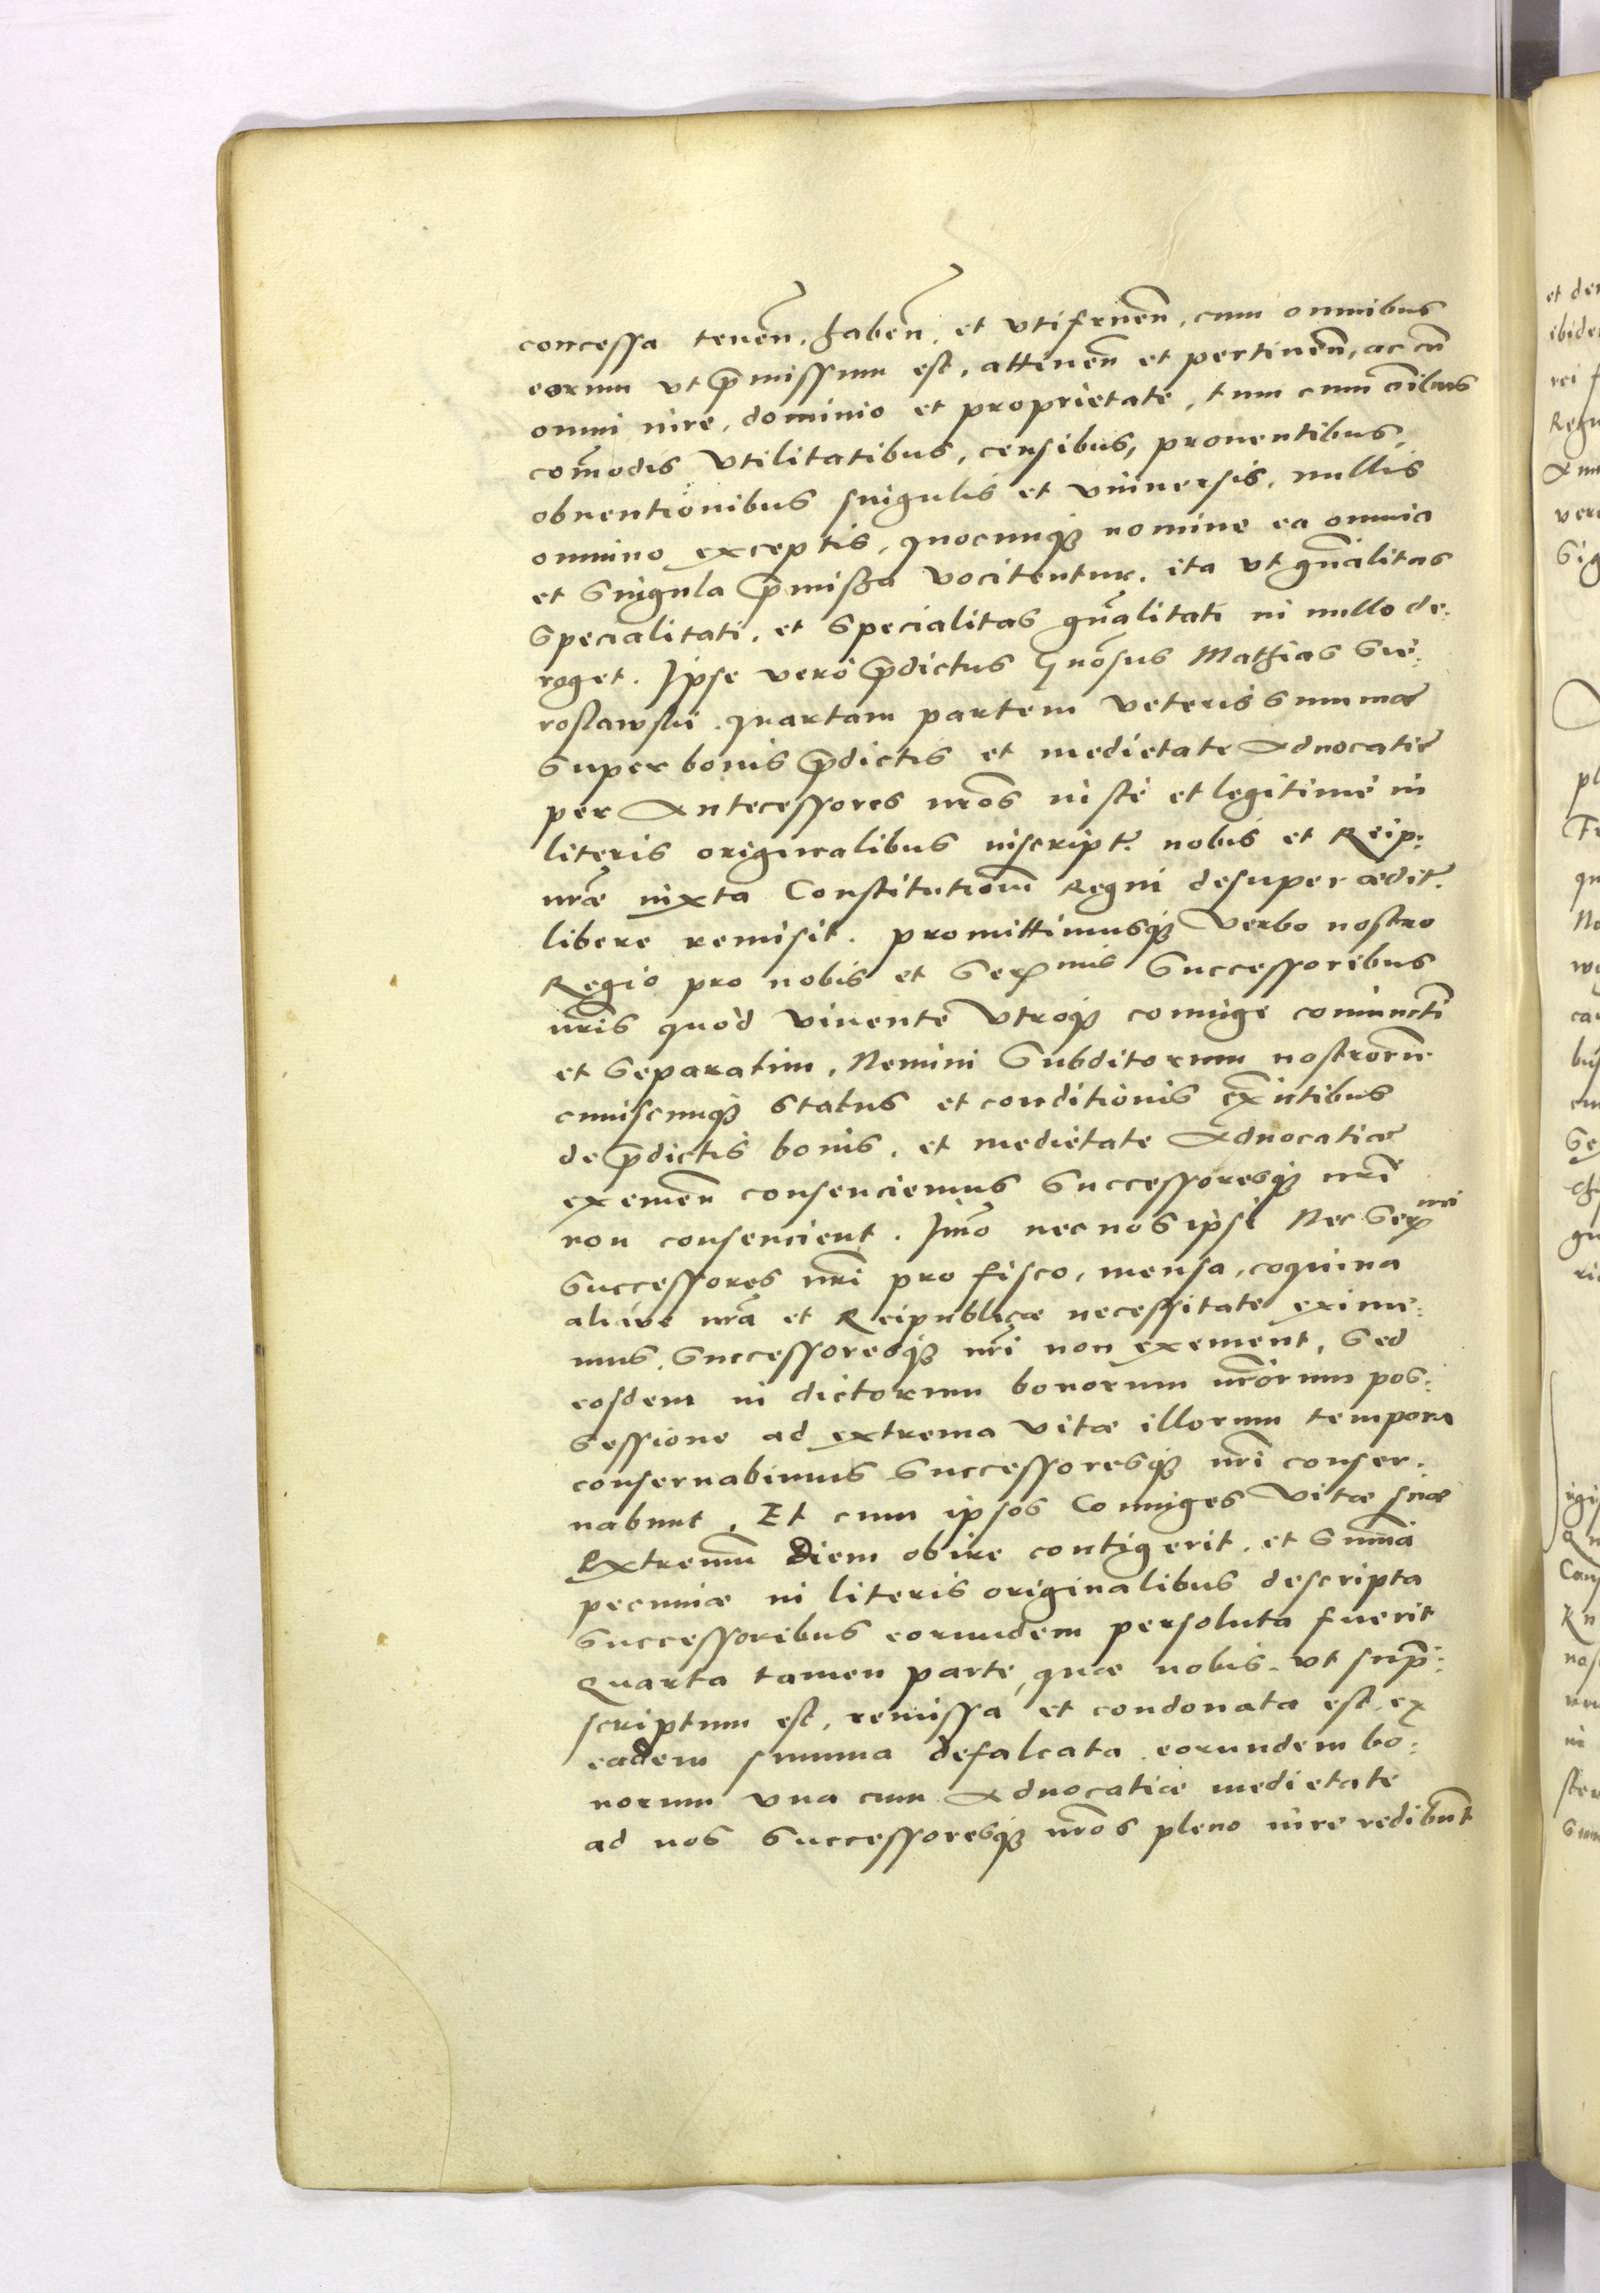 concessa tenen̄, haben̄, et vtifruen̄, cum omnibus
eorum vt p̄missum est, attinen̄ et pertinen̄, ac cū
omni iure, dominio et proprietate, tum cum oībus
com̄odis vtilitatibus, censibus, prouentibus,
obuentionibus singulis et vniuersis, nullis
omnino exceptis, quocunqꝫ nomine ea omnia
et singula p̄missa vocitentur. ita vt gn̄alitas
specialitati, et specialitas gn̄alitati in nullo de:
roget. Ipse vero p̄dictus Gn̄osus Mathias Sie:
roslawski quartam partem veteris summæ
super bonis p̄dictis et medietate Aduocatiæ
per Antecessores nr̄os iuste et legitime in
literis originalibus inscript. nobis et Reip:
nr̄æ iuxta Constitutionū Regni desuper ædit.
libere remisit. promittimusqꝫ verbo nostro
Regio pro nobis et Ser^mis Successoribus
nr̄is quod viuente vtroqꝫ coniuge coniunctī
et separatim, Nemini Subditorum nostrorum
cuiuscunqꝫ status et conditionis ex̄ntibus
de p̄dictis bonis, et medietate Aduocatiæ
eximen̄ consenciemus Successoresqꝫ nr̄i
non consencient. Im̄o nec nos ipsi Nec Ser^mi
Successores nr̄i pro fisco, mensa, coquina
aliáve nr̄a et Reipublicæ necessitate exime:
mus, Successoresqꝫ nr̄i non exement, Sed
eosdem in dictorum bonorum nr̄orum pos:
sessione ad extrema vitæ illorum tempora
conseruabimus Successoresqꝫ nr̄i conser:
uabunt. Et cum ipsos Coniuges vitæ suæ
Extremū Diem obire contigerit, et Sum̄a
pecuniæ in literis originalibus descripta
Successoribus eorundem persoluta fuerit
Quarta tamen parte, quæ nobis, vt sup̄:
scriptum est, remissa et condonata est, ex
eadem summa defalcata, eorundem bo:
norum vna cum Aduocatiæ medietate
ad nos Successoresqꝫ nr̄os pleno iure redibunt